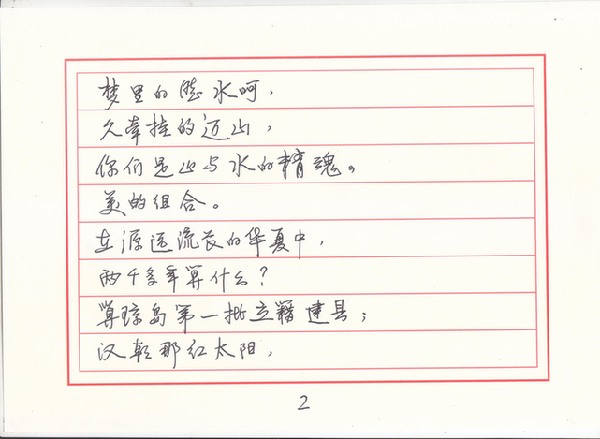 梦里的陵水呵，
久牵挂的迈山，
你们是山与水的精魂。
美的组合。
在源远流长的华夏中，
两千多年算什么？
算琼岛第一批立籍建县；
汉朝那红太阳，
2